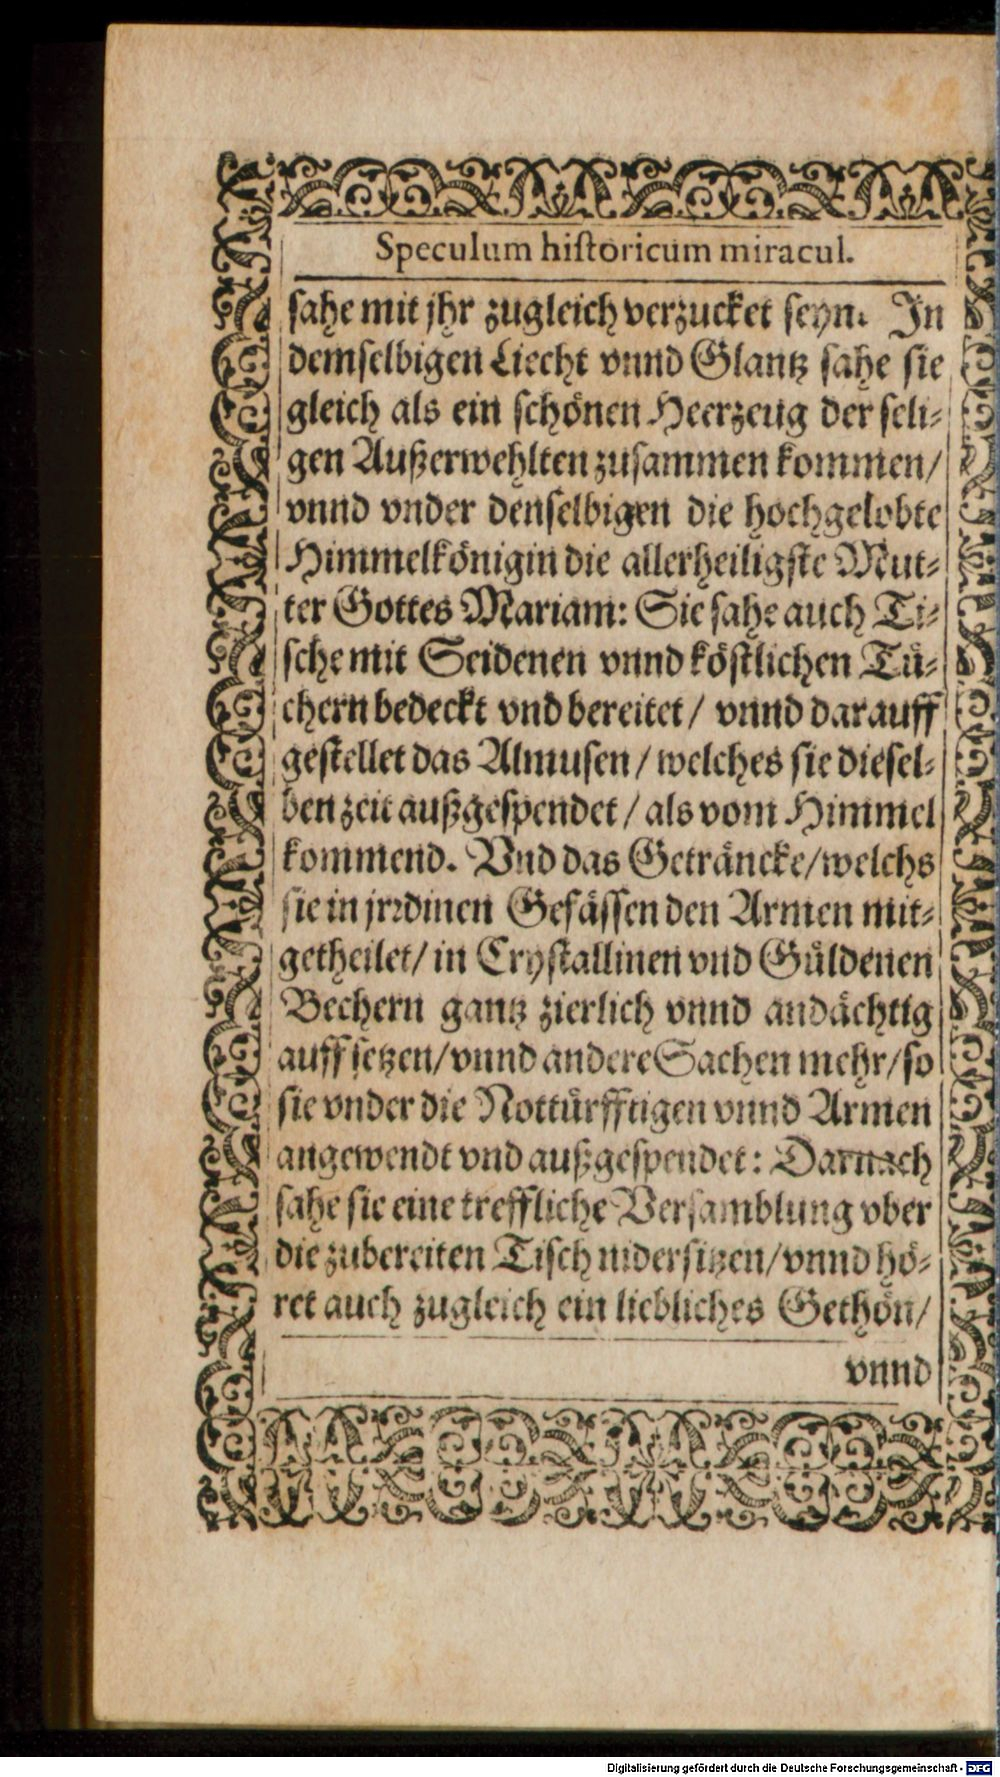 Speculum historicum miracul.
sahe mit jhr zugleich verzucket seyn. In
demselbigen Liecht vnnd Glantz sahe sie
gleich als ein schönen Heerzeug der seli-
gen Außerwehlten zusammen kommen/
vnnd vnder denselbigen die hochgelobte
Himmelkönigin die allerheiligste Mut-
ter Gottes Mariam: Sie sahe auch Ti-
sche mit Seidenen vnnd köstlichen Tü-
chern bedeckt vnd bereitet / vnnd darauff
gestellet das Almusen / welches sie diesel-
ben zeit außgespendet / als vom Himmel
kommend. Vnd das Geträncke/welchs
sie in jrrdinen Gefässen den Armen mit-
getheilet/ in Crystallinen vnd Güldenen
Bechern gantz zierlich vnnd andächtig
auff setzen/vnnd andere Sachen mehr/so
sie vnder die Nottürfftigen vnnd Armen
angewendt vnd außgespendet: Darnach
sahe sie eine treffliche Versamblung vber
die zubereiten Tisch nidersitzen/vnnd hö-
ret auch zugleich ein liebliches Gethön/
vnnd
Digitalisierung gefördert durch die Deutsche Forschungsgemeinschaft - DFG